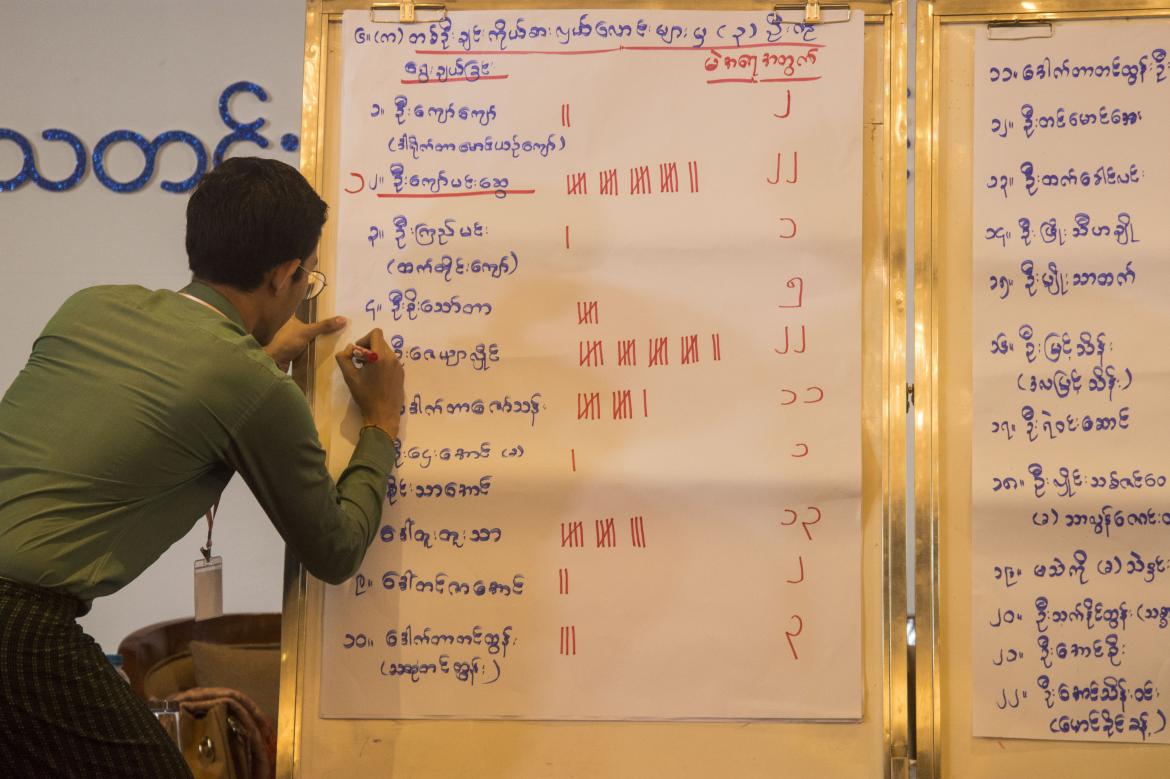 သတင်း
၆။ (က) တစ်ဦးချင်းကိုယ်စားလှယ်လောင်းများမှ (၃) ဦးကို
ရွေးချယ်ခြင်း
မဲအရေအတွက်
၁။ ဦးကျော်ကျော် ၂
(ဒါရိုက်တာမောင်ယဉ်ကျော်)
၁ ၂။ ဦးကျော်မင်းဆွေ ၂၂
၃။ ဦးကြည်မင်း ၁
(ထက်တိုင်းကျော်)
၄။ ဦးစိုးသော်တာ ၅
ဦးဇေယျာလှိုင် ၂၂
ဒေါက်တာဇော်သန်း ၁၁
ဦးဌေးအောင် (ခ) ၁
စိုင်းသာအောင်
ဒေါ်ထူးထူးသာ ၁၃
၉။ ဒေါ်တင်ဇာအောင် ၂
၁၀။ ဒေါက်တာတင်ထွန်း ၃
၁၁။ ဒေါက်တာတင်ထွန်းဦး
၁၂။ ဦးတင်မောင်အေး
၁၃။ ဦးထက်ခေါင်လင်း
၁၄။ ဦးဖြိုးသီဟချို
၁၅။ ဦးမျိုးသာထက်
၁၆။ ဦးမြင့်သိန်း
(ဒလမြင့်သိန်း)
၁၇။ ဦးရဲဝင်းဆောင်
၁၈။ ဦးလှိုင်သစ်ဇင်ဝေ
(ခ)
၁၉။ မသဲကို (ခ) သဲနှင်း
၂၀။ ဦးသက်နိုင်ထွန်း
၂၁။ ဦးအောင်စိုး
၂၂။ ဦးအောင်သိန်းဝင်း
(မောင်ခိုင်ခန့်)